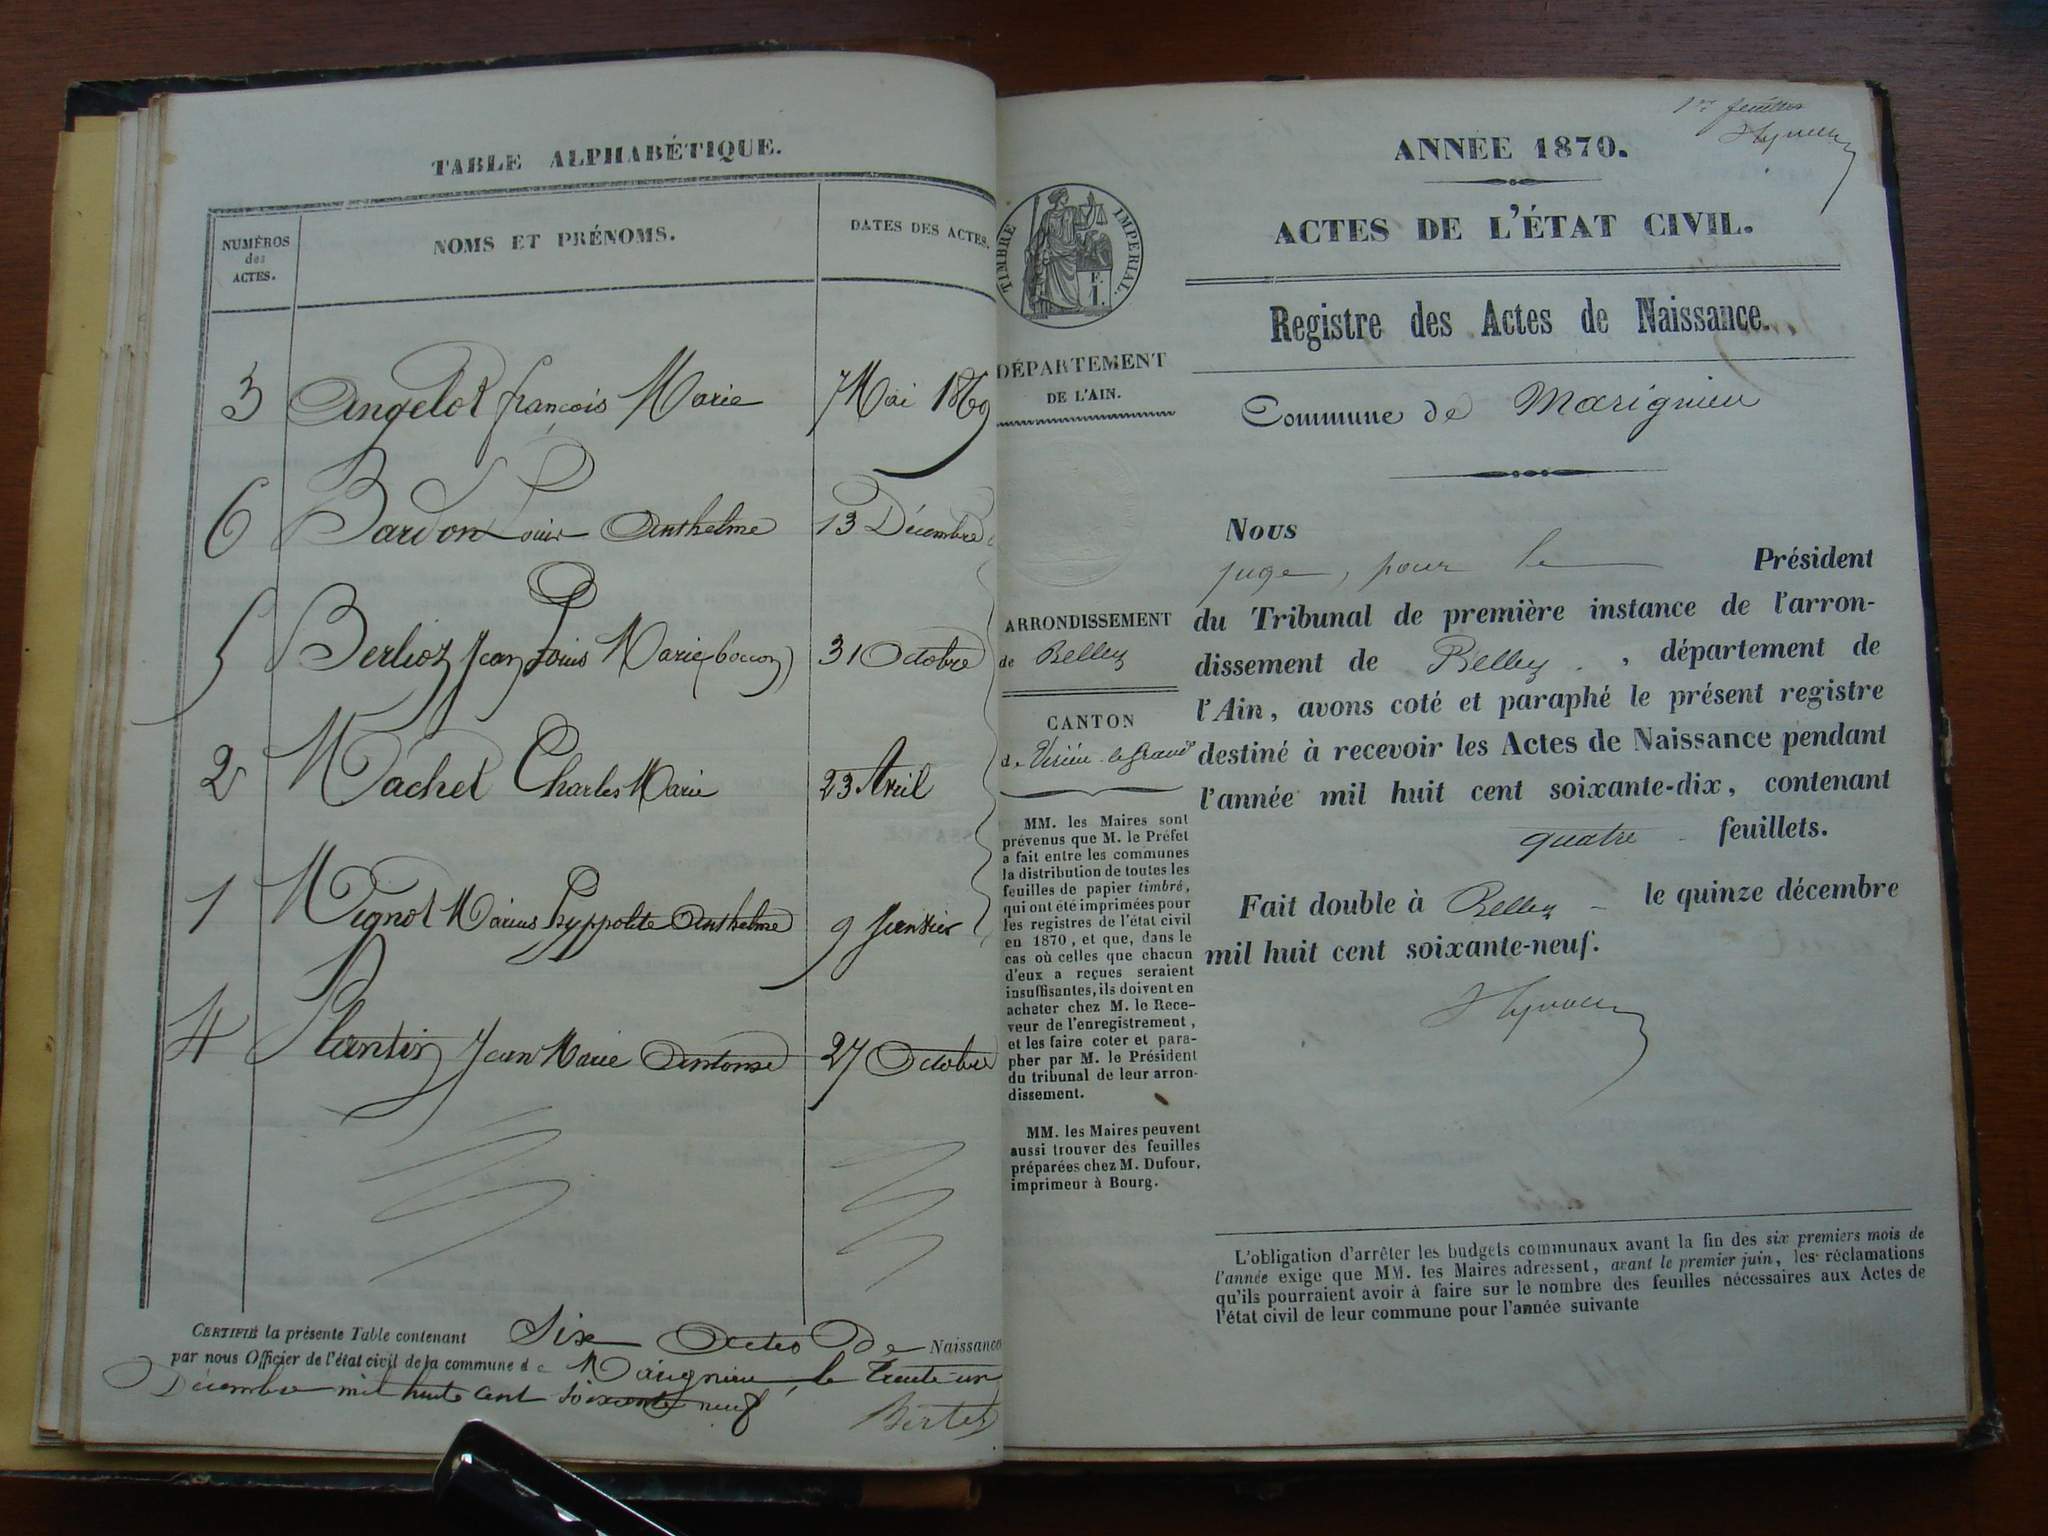 TABLE ALPHABÉTIQUE.
NUMÉROS
des
ACTES.
NOMS ET PRÉNOMS.
DATES DES ACTES.
3 Angelot françois Marie 7 Mai 1869
6 Bardon Louis Anthelme 13 Décembre
5 Berlioz Jean Louis Marie 31 Octobre
2 Machet Charles Marie 23 Avril
1 Mignot Marius hyppolite Anthelme 9 Janvier
4 Plantin Jean Marie Antoine 27 Octobre
CERTIFIÉ la présente Table contenant Six Actes De Naissance
par nous Officier de l'état civil de la commune de Marignieu, le Trente un
Décembre mil huit cent soixante neuf
1er feuillet
ANNÉE 1870.
ACTES DE L'ÉTAT CIVIL.
Registre des Actes de Naissance.
Commune de Marignieu
TIMBRE IMPERIAL.
E.
1.
DÉPARTEMENT
DE L'AIN.
ARRONDISSEMENT
de Belley
CANTON
de Virieu le grand
MM. les Maires sont
prévenus que M. le Préfet
a fait entre les communes
la distribution de toutes les
feuilles de papier timbré,
qui ont été imprimées pour
les registres de l'état civil
en 1870, et que, dans le
cas où celles que chacun
d'eux a reçues seraient
insuffisantes, ils doivent en
acheter chez M. le Rece-
veur de l'enregistrement,
et les faire coter et para-
pher par M. le Président
du tribunal de leur arron-
dissement.
MM. les Maires peuvent
aussi trouver des feuilles
préparées chez M. Dufour,
imprimeur à Bourg.
Nous
juge, pour le Président
du Tribunal de première instance de l'arron-
dissement de Belley, département de
l'Ain, avons coté et paraphé le présent registre
destiné à recevoir les Actes de Naissance pendant
l'année mil huit cent soixante-dix, contenant
quatre feuillets.
Fait double à Belley le quinze décembre
mil huit cent soixante-neuf.
L'obligation d'arrêter les budgets communaux avant la fin des six premiers mois de
l'année exige que MM. les Maires adressent, avant le premier juin, les réclamations
qu'ils pourraient avoir à faire sur le nombre des feuilles nécessaires aux Actes de
l'état civil de leur commune pour l'année suivante